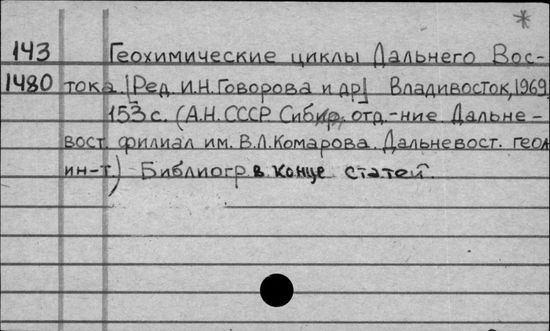 *
143 Геохимические циклы Дальнего Вос-
1480 тока. [Ред. И.Н. Говорова и др] Владивосток, 1969
153 с. (А.Н. СССР Сибир. отд-ние Дальне-
вост. филиал им. В.Л. Комарова. Дальневост. геол
ин-т.) Библиогр. в конце статей